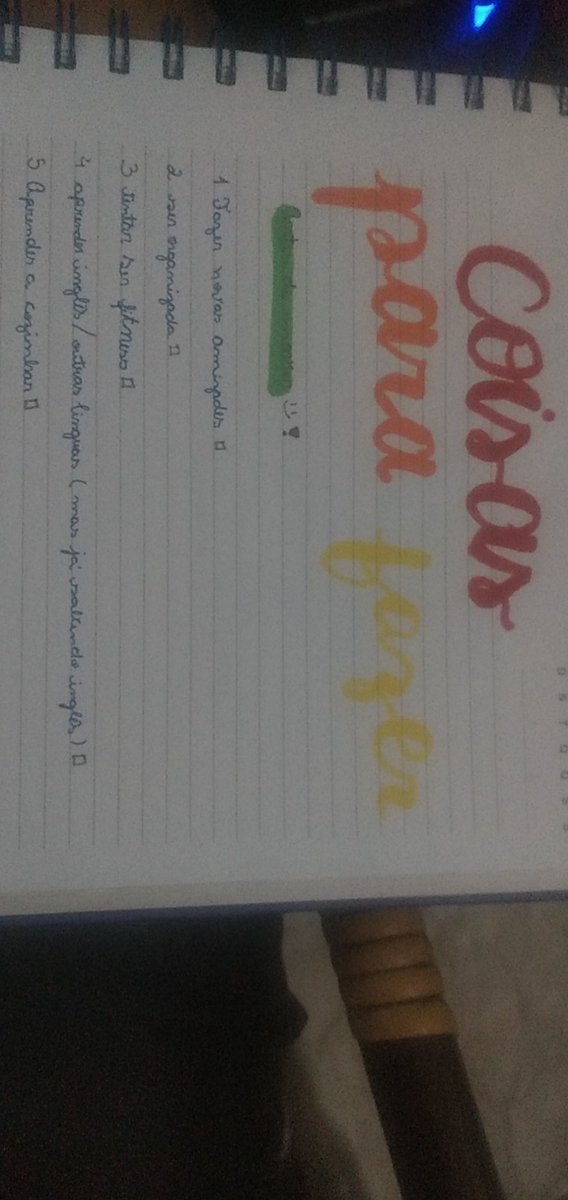 D S T Q Q S S
Coisas
para fazer
Antes de morrer :) ♥
1 Fazer novas amizades □
2 ser organizada □
3 tentar ser fitness □
4 aprender inglês/outras línguas (mas já sabendo inglês) □
5 Aprender a cozinhar □